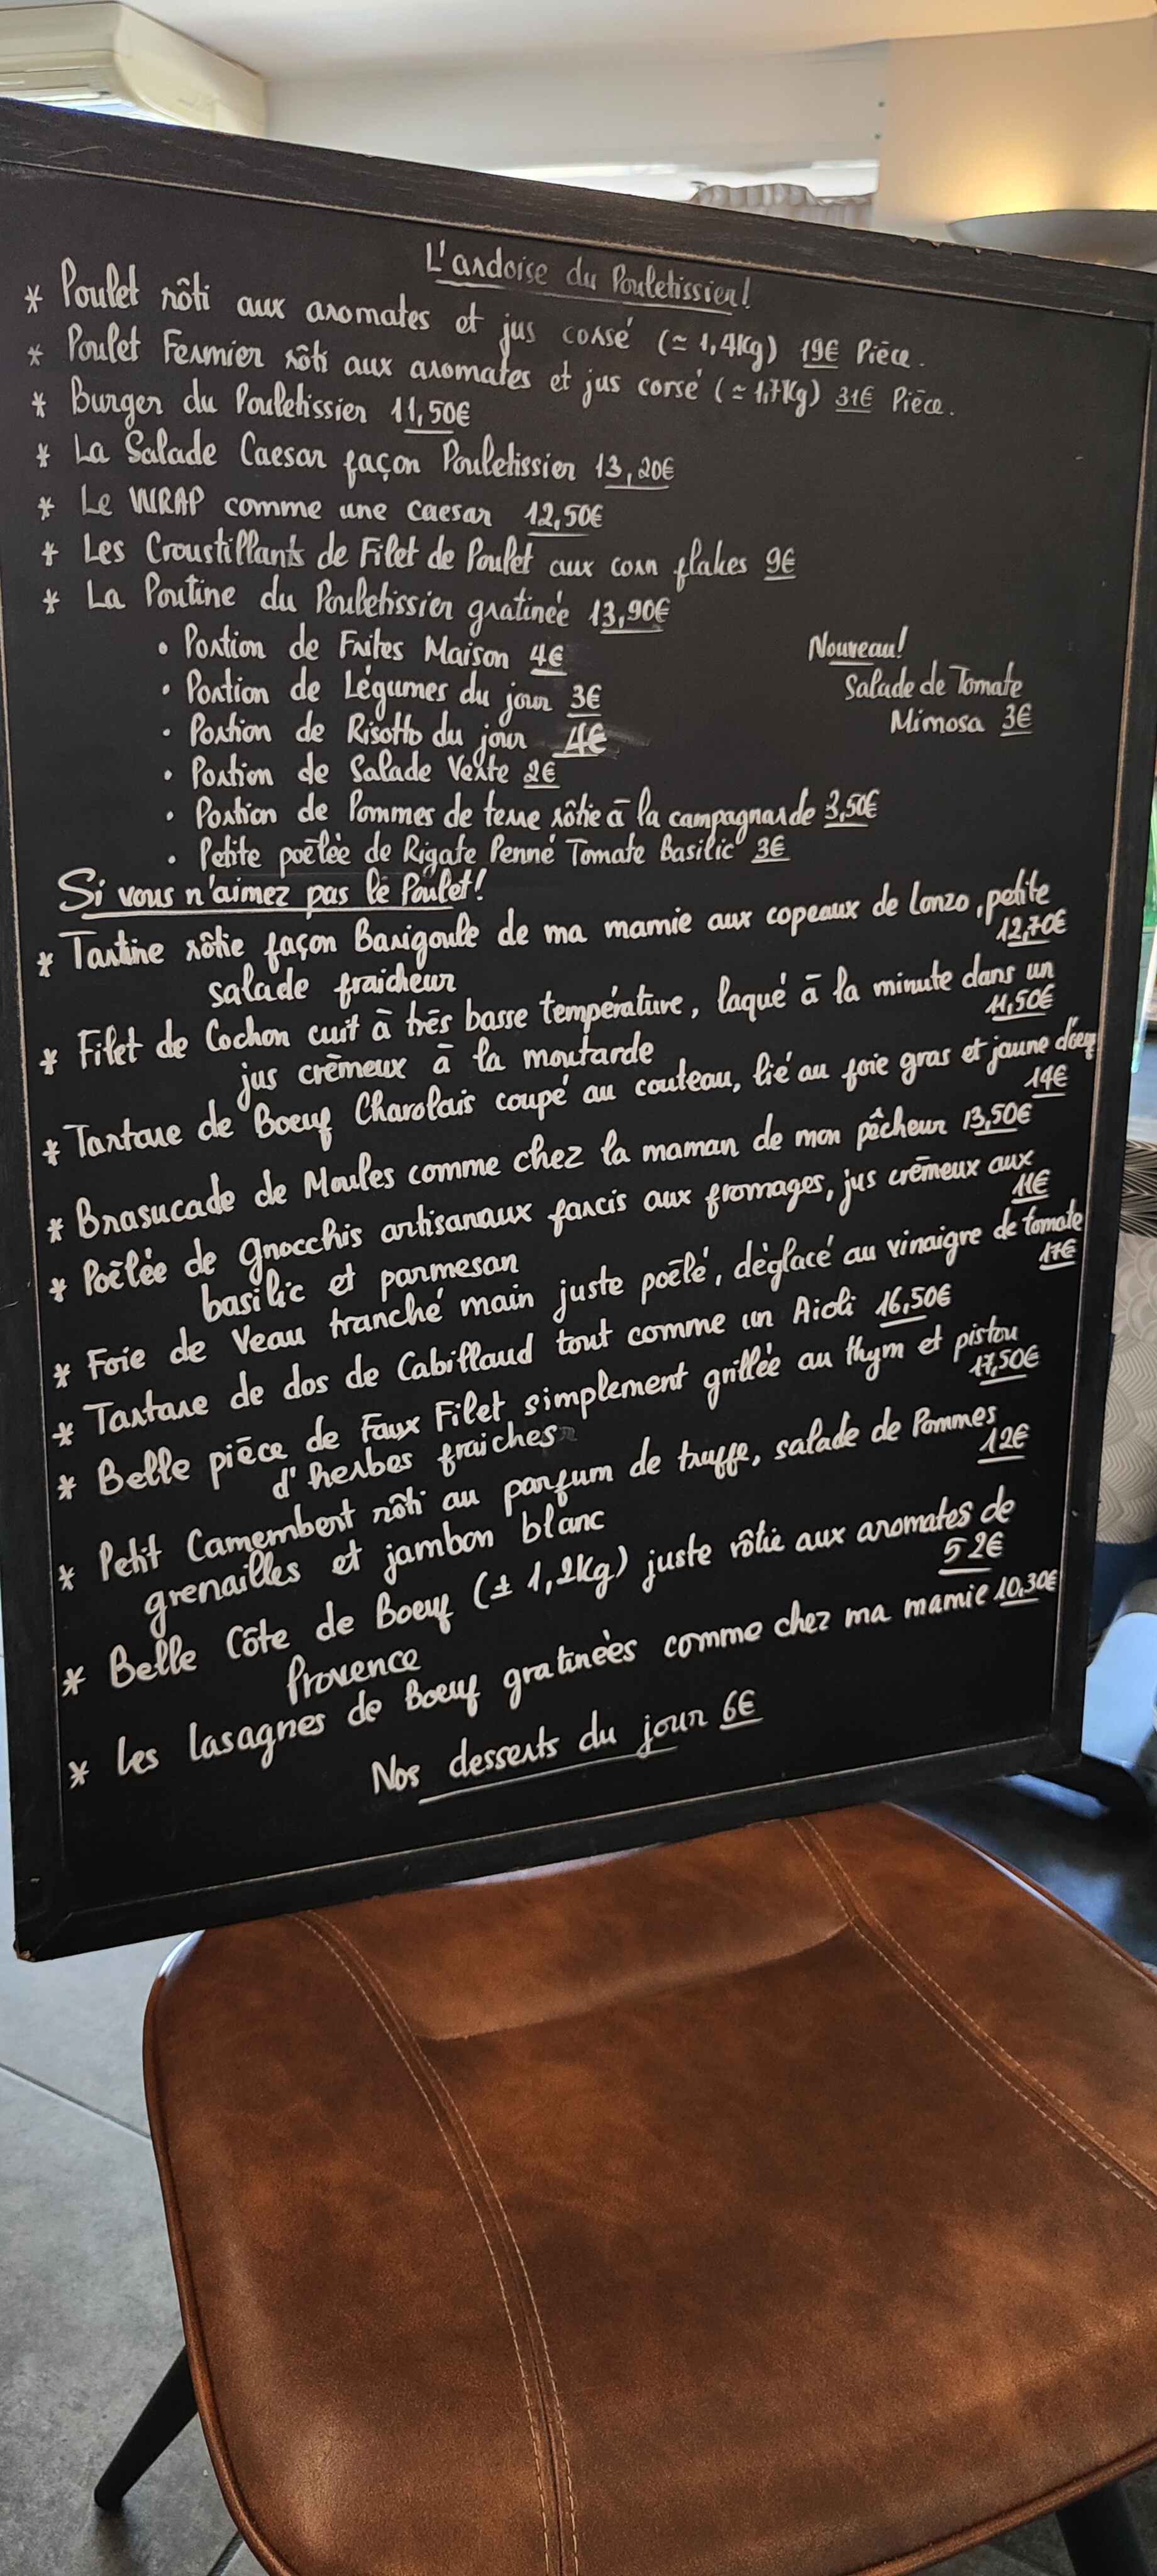 L'ardoise du Pouletissier!
* Poulet rôti aux aromates et jus corsé (≃ 1,4Kg) 19€ Pièce.
* Poulet Fermier rôti aux aromates et jus corsé (≃ 1,7Kg) 31€ Pièce.
* Burger du Pouletissier 11,50€
* La Salade Caesar façon Pouletissier 13,20€
* Le WRAP comme une Caesar 12,50€
* Les Croustillants de Filet de Poulet aux corn flakes 9€
* La Poutine du Pouletissier gratinée 13,90€
• Portion de Frites Maison 4€
• Portion de Légumes du jour 3€
• Portion de Risotto du jour 4€
• Portion de Salade Verte 2€
• Portion de Pommes de terre rôtie à la campagnarde 3,50€
• Petite poêlée de Rigate Penné Tomate Basilic 3€
Nouveau!
Salade de Tomate
Mimosa 3€
Si vous n'aimez pas le Poulet!
* Tartine rôtie façon Barigoule de ma mamie aux copeaux de lonzo, petite
salade fraicheur 12,70€
* Filet de Cochon cuit à très basse température, laqué à la minute dans un
jus crèmeux à la moutarde 11,50€
* Tartare de Boeuf Charolais coupé au couteau, lié au foie gras et jaune d'oeuf
14€
* Brasucade de Moules comme chez la maman de mon pêcheur 13,50€
* Poêlée de gnocchis artisanaux farcis aux fromages, jus crèmeux aux
basilic et parmesan 11€
* Foie de Veau tranché main juste poêlé, dèglacé au vinaigre de tomate
17€
* Tartare de dos de Cabillaud tout comme un Aioli 16,50€
* Belle pièce de Faux Filet simplement grillée au thym et pistou
d'herbes fraiches 17,50€
* Petit Camembert rôti au parfum de truffe, salade de Pommes
grenailles et jambon blanc 12€
* Belle Côte de Boeuf (± 1,2Kg) juste rôtie aux aromates de
Provence 52€
* Les lasagnes de Boeuf gratinèes comme chez ma mamie 10,30€
Nos desserts du jour 6€